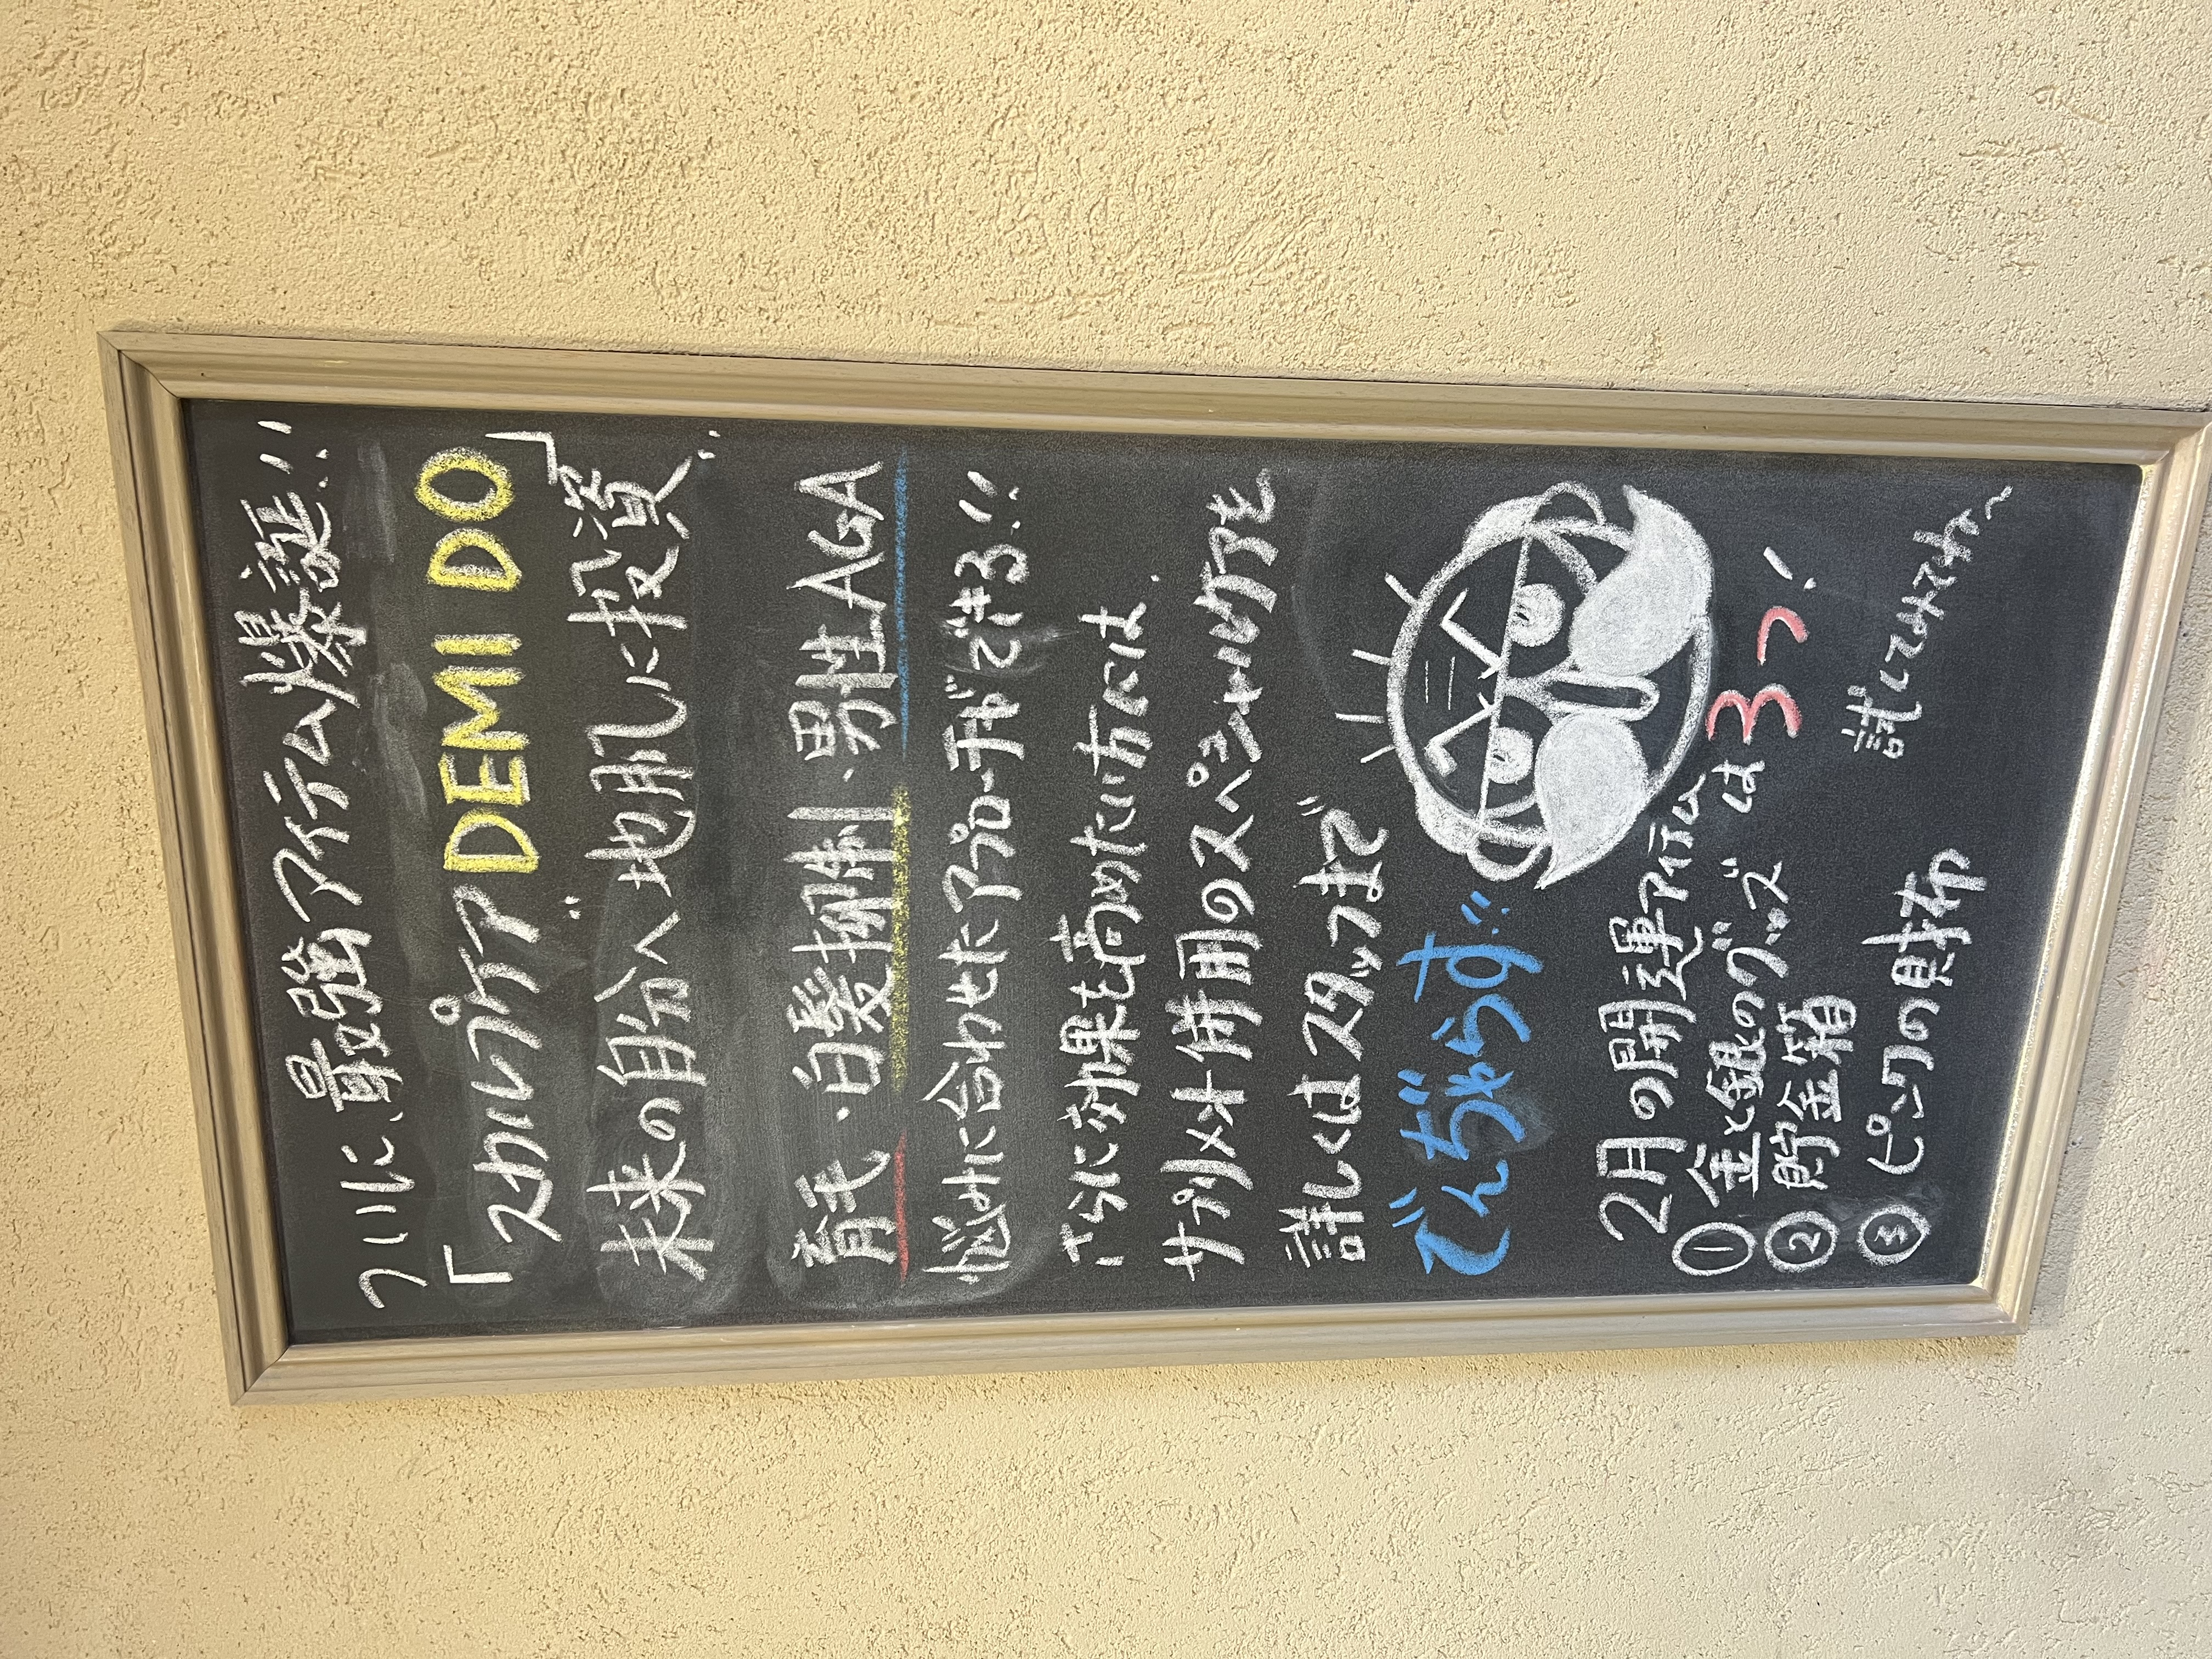 ついに、最強アイテム爆誕!!
「スカルプケアDEMI DO」
未来の自分へ〝地肌に投資〟
育毛・白髪抑制・男性AGA
悩みに合わせたアプローチができる!!
さらに効果を高めたい方には
サプリメント併用のスペシャルケアを
詳しくはスタッフまで
でんぢゃらす!!
2月の開運アイテムは3つ!
①金と銀のグッズ
②貯金箱
③ピンクの財布
試してみてね〜